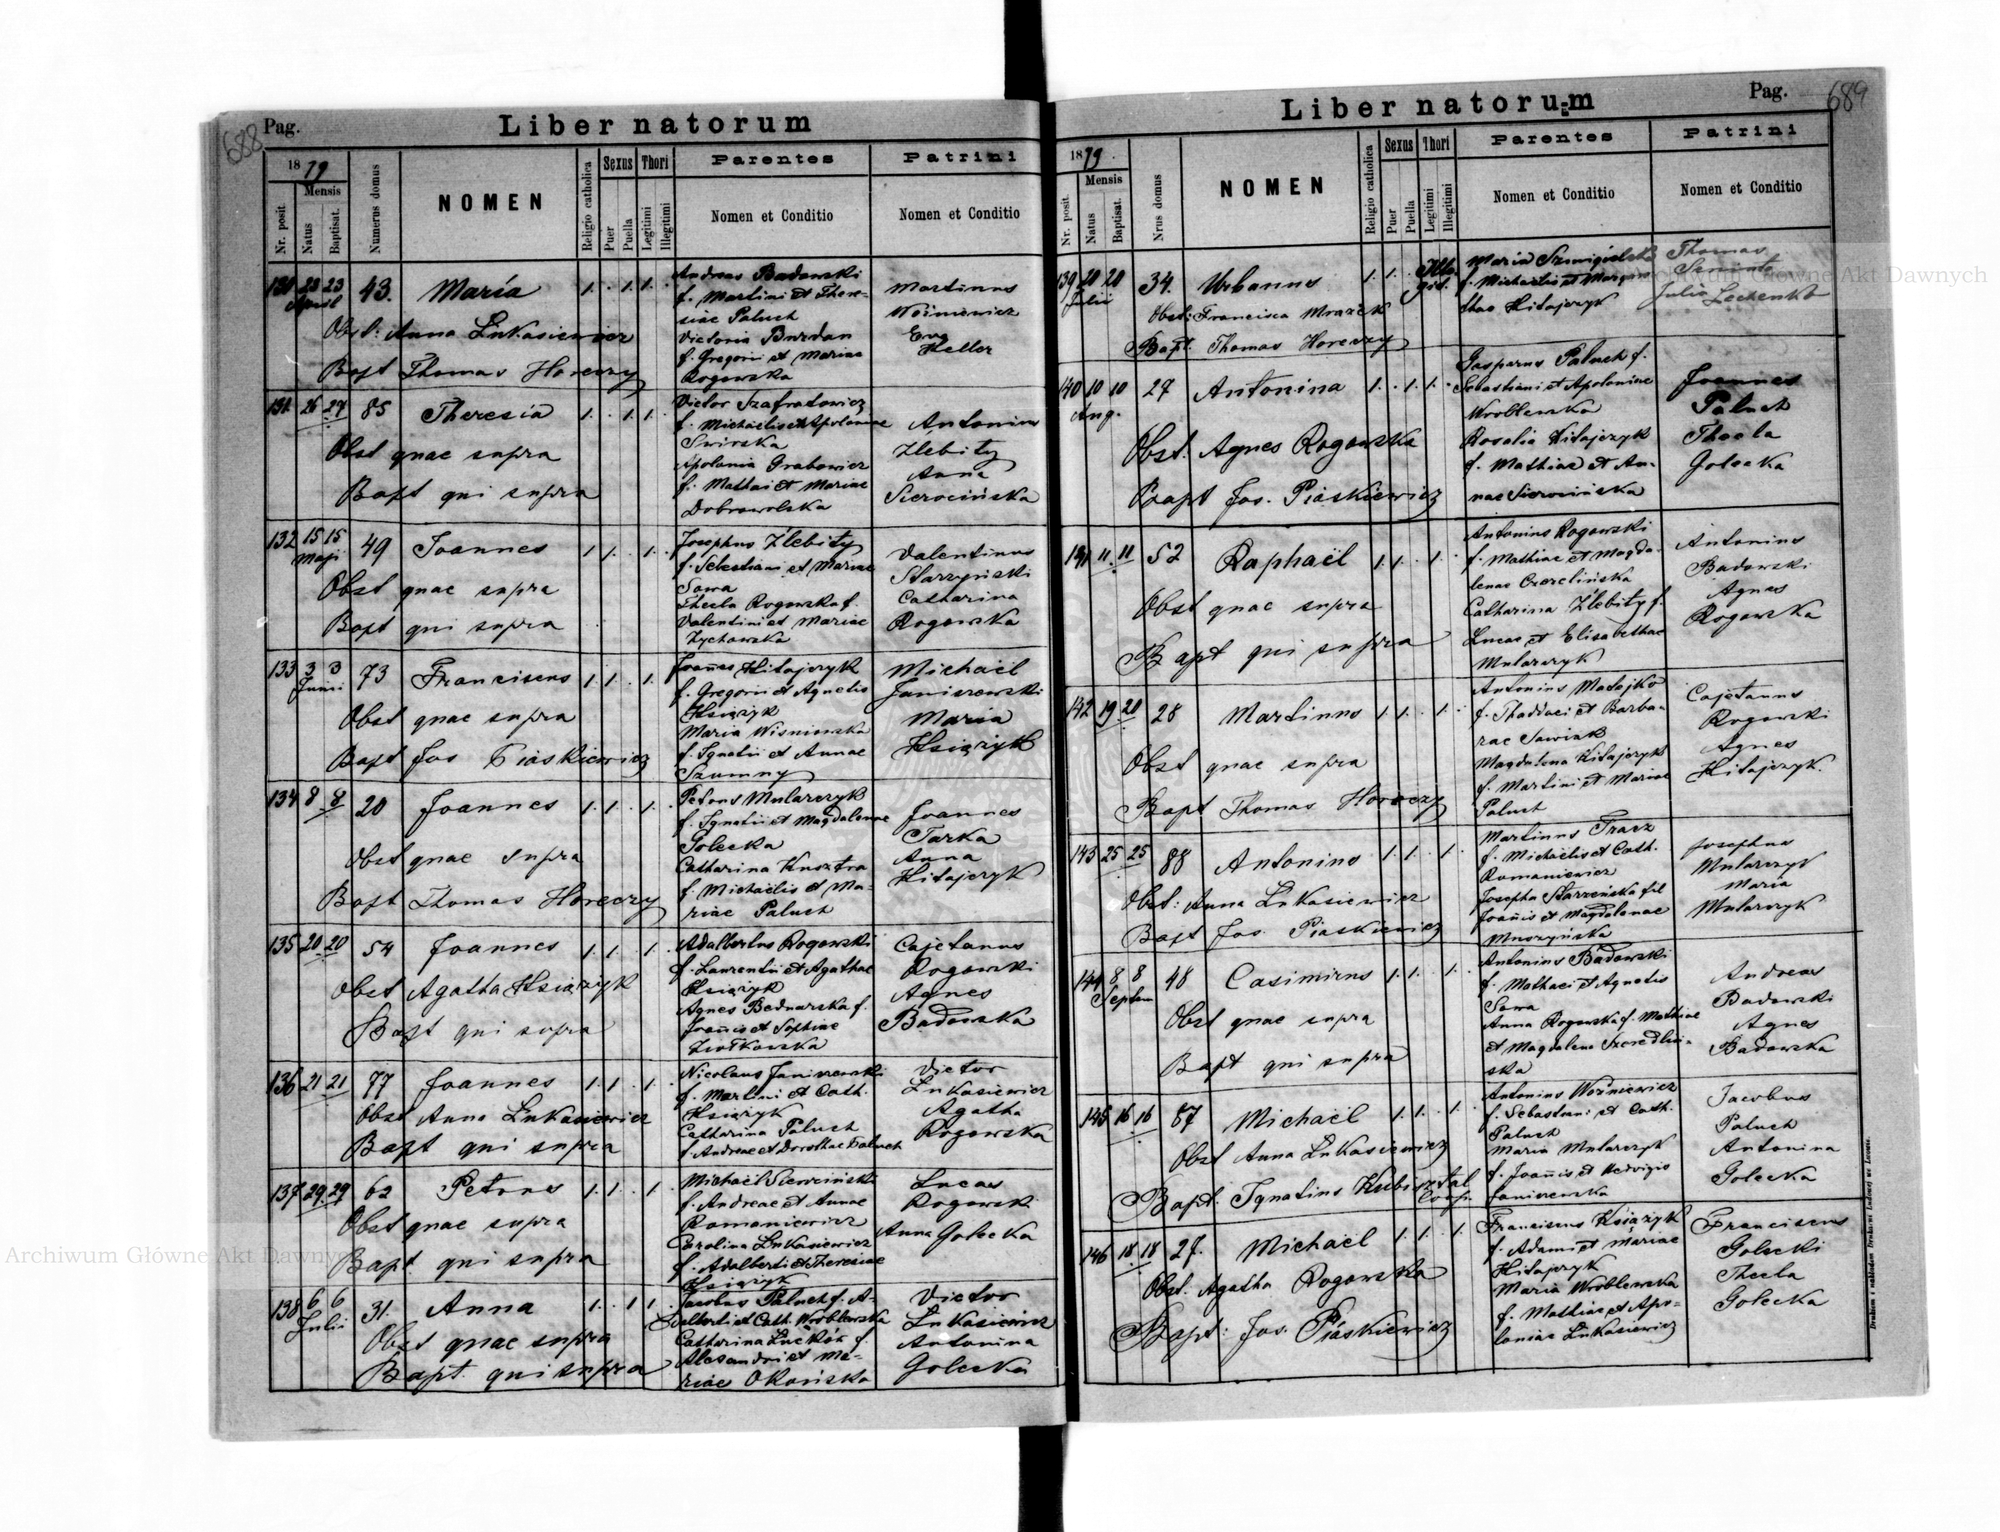 688 Pag.
Liber natorum
1879
Mensis
Nr. posit.
Natus
Baptisat.
Numerus domus
NOMEN
Religio catholica
Sexus
Puer
Puella
Thori
Legitimi
Illegitimi
Parentes
Nomen et Conditio
Patrini
Nomen et Conditio
23 23 43. Maria 1. . 1 1.
April
Obst: Anna Lukasiewicz
Bapt Thomas Horeczy
Andreas Badowski
f. Martini et There-
siae Paluch
Victoria Burdan
f. Gregorii et Mariae
Rogowska
Martinus
Woźniewicz
Eva
Heller
131 26 27 85 Theresia 1. . 1. 1.
Obst quae supra
Bapt qui supra
Victor Szafratowicz
f. Michaelis et Apoloniae
Swirska
Apolonia Grabowicz
f. Mathai et Mariae
Dobrowolska
Antonius
Zlebity
Anna
Sierocińska
132 15 15 49 Joannes 1. 1. . 1.
Maji
Obst quae supra
Bapt qui supra
Josephus Zlebity
f. Sebastiani et Mariae
Sowa
Thecla Rogowska f.
Valentini et Mariae
Zychowska
Valentinus
Starzyński
Catharina
Rogowska
133 3 3 73 Franciscus 1. 1. . 1.
Junii
Obst quae supra
Bapt Jos Piaskiewicz
Joannes Kitajczyk
f. Gregorii et Agnetis
Książyk
Maria Wisniowska
f. Ignatii et Annae
Szumny
Michaël
Janiszewski
Maria
Książyk
134 8 8 20 Joannes 1. 1. . 1.
Obst quae supra
Bapt Thomas Horeczy
Petrus Mularczyk
f. Ignatii et Magdalenae
Golecka
Catharina Kusztra
f. Michaëlis et Ma-
riae Paluch
Joannes
Tarka
Anna
Kitajczyk
135 20 20 54 Joannes 1. 1. . 1.
Obst Agatha Książyk
Bapt qui supra
Adalbertus Rogowski
f. Laurentii et Agathae
Książyk
Agnes Bednarska f.
Joannis et Sophiae
Ziołkowska
Cajetanus
Rogowski
Agnes
Badowska
136 21 21 77 Joannes 1. 1. . 1.
Obst Anna Lukasiewicz
Bapt qui supra
Nicolaus Janiszewski
f. Martini et Cath.
Książyk
Catharina Paluch
f. Andreae et Dorothae Paluch
Victor
Lukasiewicz
Agatha
Rogowska
137 29 29 62 Petrus 1. 1. . 1.
Obst quae supra
Bapt. qui supra
Michaël Sierociński
f. Andreae et Annae
Romaniewicz
Carolina Lukasiewicz
f. Adalberti et Theresiae
Książyk
Lucas
Rogowski
Anna Golecka
138 6 6 31. Anna 1. . 1 1.
Julii
Obst quae supra
Bapt. qui supra
Jacobus Paluch f. A-
dalberti et Cath. Wroblewska
Catharina f.
Alexandri et Ma-
riae Okońska
Victor
Lukasiewicz
Antonina
Golecka
Liber natorum
Pag. 689
1879.
Mensis
Nr. posit.
Natus
Baptisat.
Nrus domus
NOMEN
Religio catholica
Sexus
Puer
Puella
Thori
Legitimi
Illegitimi
Parentes
Nomen et Conditio
Patrini
Nomen et Conditio
139 20 20 34. Urbanus 1. 1. . Ille-
Julii git.
Obst: Francisca Mrazek
Bapt. Thomas Horeczy
Maria Szmigielska
f. Michaelis et
Kitajczyk
Thomas
Julia
140 10 10 27 Antonina 1. . 1. 1.
Aug.
Obst. Agnes Rogowska
Bapt Jos. Piaskiewicz
Gasparus Paluch f.
Sebastiani et Apoloniae
Wroblewska
Rosalia Kitajczyk
f. Mathiae et An-
nae Sierocińska
Joannes
Paluch
Thecla
Golecka
141 11 11 52 Raphaël 1. 1. . 1.
Obst quae supra
Bapt qui supra
Antonius Rogowski
f. Mathiae et Magda-
lenae
Catharina Zlebity f.
Lucae et Elisabethae
Mularczyk
Antonius
Badowski
Agnes
Rogowska
142 19 20 28 Martinus 1. 1. . 1.
Obst quae supra
Bapt Thomas Horeczy
Antonius Matejko
f. Thaddaei et Barba-
rae Sawiak
Magdalena Kitajczyk
f. Martini et Mariae
Paluch
Cajetanus
Rogowski
Agnes
Kitajczyk.
143 25 25 88 Antonius 1. 1. . 1.
Obst: Anna Lukasiewicz
Bapt Jos. Piaskiewicz
Martinus Tracz
f. Michaëlis et Cath.
Romaniewicz
Josepha Starzeńska fil
Joannis et Magdalenae
Muszyńska
Josephus
Mularczyk
Maria
Mularczyk
144 8 8 48 Casimirus 1. 1. . 1.
Septem
Obst quae supra
Bapt qui supra
Antonius Badowski
f. Mathaei et Agnetis
Sowa
Anna Rogowska f. Mathiae
et Magdalena
ska
Andreas
Badowski
Agnes
Badowska
145 16 16 87 Michaël 1. 1. . 1.
Obst Anna Lukasiewicz
Bapt. Ignatius Kubisztal
Coop.
Antonius Woźniewicz
f. Sebastiani et Cath.
Paluch
Maria Mularczyk
f. Joannis et Hedvigis
Janiszewska
Jacobus
Paluch
Antonina
Golecka
146 18 18 27. Michaël 1. 1. . 1.
Obst. Agatha Rogowska
Bapt: Jos. Piaskiewicz
Franciscus Książyk
f. Adami et Mariae
Kitajczyk
Maria Wroblewska
f. Mathiae et Apo-
loniae Lukasiewicz
Franciscus
Golecki
Thecla
Golecka
Drukiem i nakładem Drukarni Ludowej we Lwowie.
Archiwum Główne Akt Dawnych
Archiwum Główne Akt Dawnych